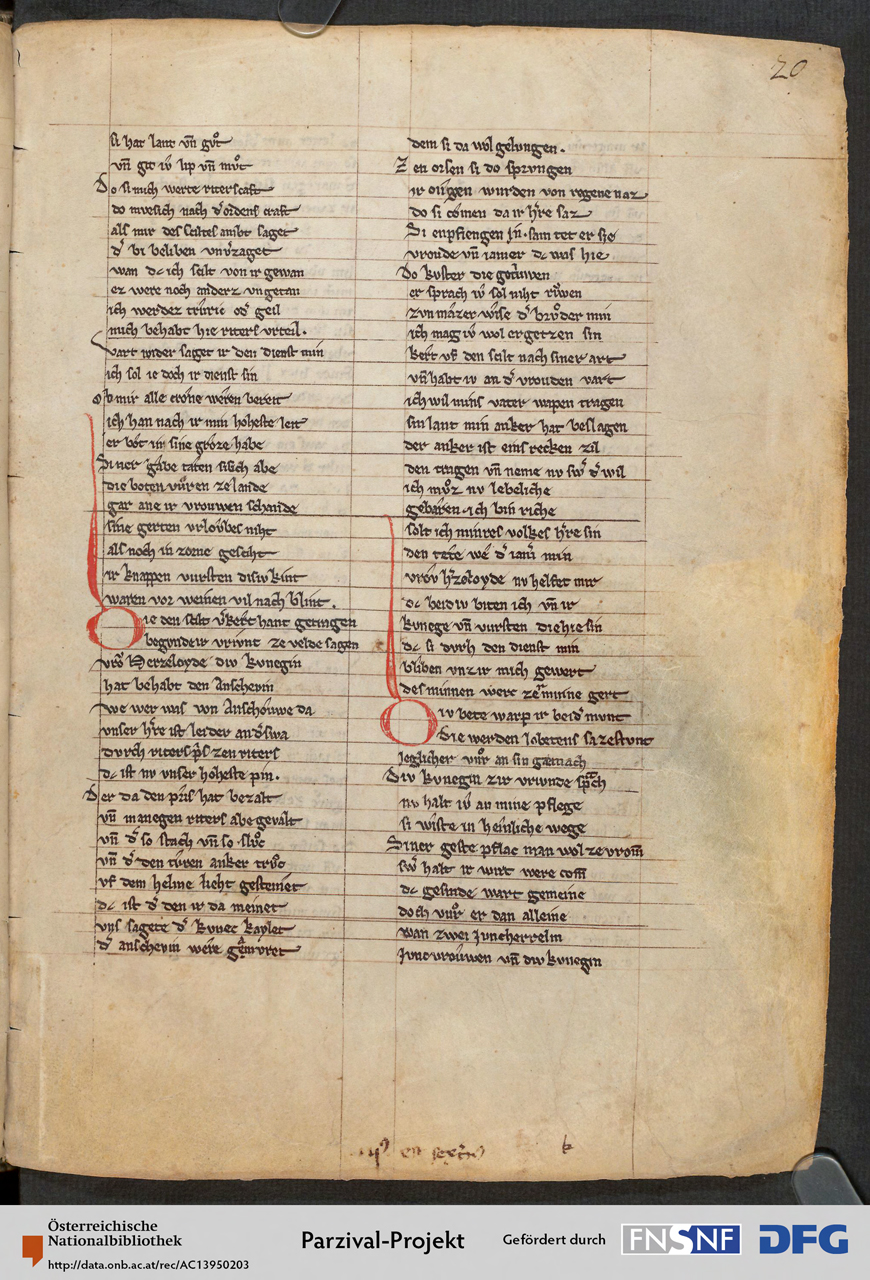 20
si hat lant vn̄ gůt
vn̄ git iv lip vn̄ můt
Do si mich werte riterscaft
do mvesich nach d͛ ordens craft
als mir des sciltes ambt saget
d͛ bi beliben vnv͛zaget
wan dc ich scilt von ir gewan
ez were noch anderz vngetan
ich werdez trůric od͛ geil
mich behabt hie riters vrteil.
vart wider saget ir den dienst min
ich sol ie doch ir dienst sin
ob mir alle crone weren bereit
ich han nach ir min hoheste leit
er bot in sine groze habe
Siner gabe taten si sich abe
die boten vůren ze lande
gar ane ir vrouwen schande
sine gerten vrloubes niht
als noch in zorne gesciht
ir knappen vursten disiv kint
waren vor weinen vil nach blint.
Die den scilt v͛kert hant getragen
begvnde ir vrivnt ze velde sagen
vrŏ Herzeloyde div kvnegin
hat behabt den Anschevin
we wer was von Anschouwe da
vnser h͛re ist leider and͛swa
durch riters pris zen riters
dc ist nv vnser hoheste pin.
Der da den pris hat bezalt
vn̄ manegen riters abe gevalt
vn̄ d͛ so stach vn̄ so slůc
vn̄ d͛ den tiuren anker trůc
vf dem helme lieht gesteinet
dc ist d͛ den ir da meinet
vns sagete d͛ kvnec kaylet
d͛ anschevin were gamvret
dem si da wol gelungen.
Zen orsen si do sprvngen
ir ougen wurden von regene naz
do si comen da ir h͛re saz
Si enpfiengen in. sam tet er sie
vroude vn̄ iamer dc was hie
Do kvster die getriwen
er sprach iv sol niht riwen
zvn mazer wise d͛ brůder min
ich mag iv wol ergetzen sin
kert vf den scilt nach siner art
vn̄ habt iv an d͛ vrouden vart
ich wil mins vater wapen tragen
sin lant min anker hat beslagen
der anker ist eins recken zil
den tragen vn̄ neme nv sw͛ d͛ wil
ich můz nv lebeliche
gebaren. ich bin riche
solt ich mines volkes h͛re sin
den tete we d͛ iam͛ min
vrov h͛zeloyde nv helfet mir
dc beidiv biten ich vn̄ ir
kvnege vn̄ vursten die hie sin
dc si dvrh den dienst min
bliben vnz ir mich gewert
des minnen werc ze minne gert
Div bete warp ir beid͛ mvnt
die werden lobetens sa ze stvnt
Jeglicher vůr an sin gemach
Div kvnegin zir vrivnde sprach
nv halt iv an mine pflege
si wiste in heinliche wege
Siner geste pflac man wol ze vrom̄
sw͛ halt ir wirt were com̄
dc gesinde wart gemeine
doch vůr er dan alleine
wan zwei Juncherrelin
Juncvrouwen vn̄ div kvnegin
Österreichische
Nationalbibliothek
http://data.onb.ac.at/rec/AC13950203
Parzival-Projekt
Gefördert durch
FNSNF
DFG